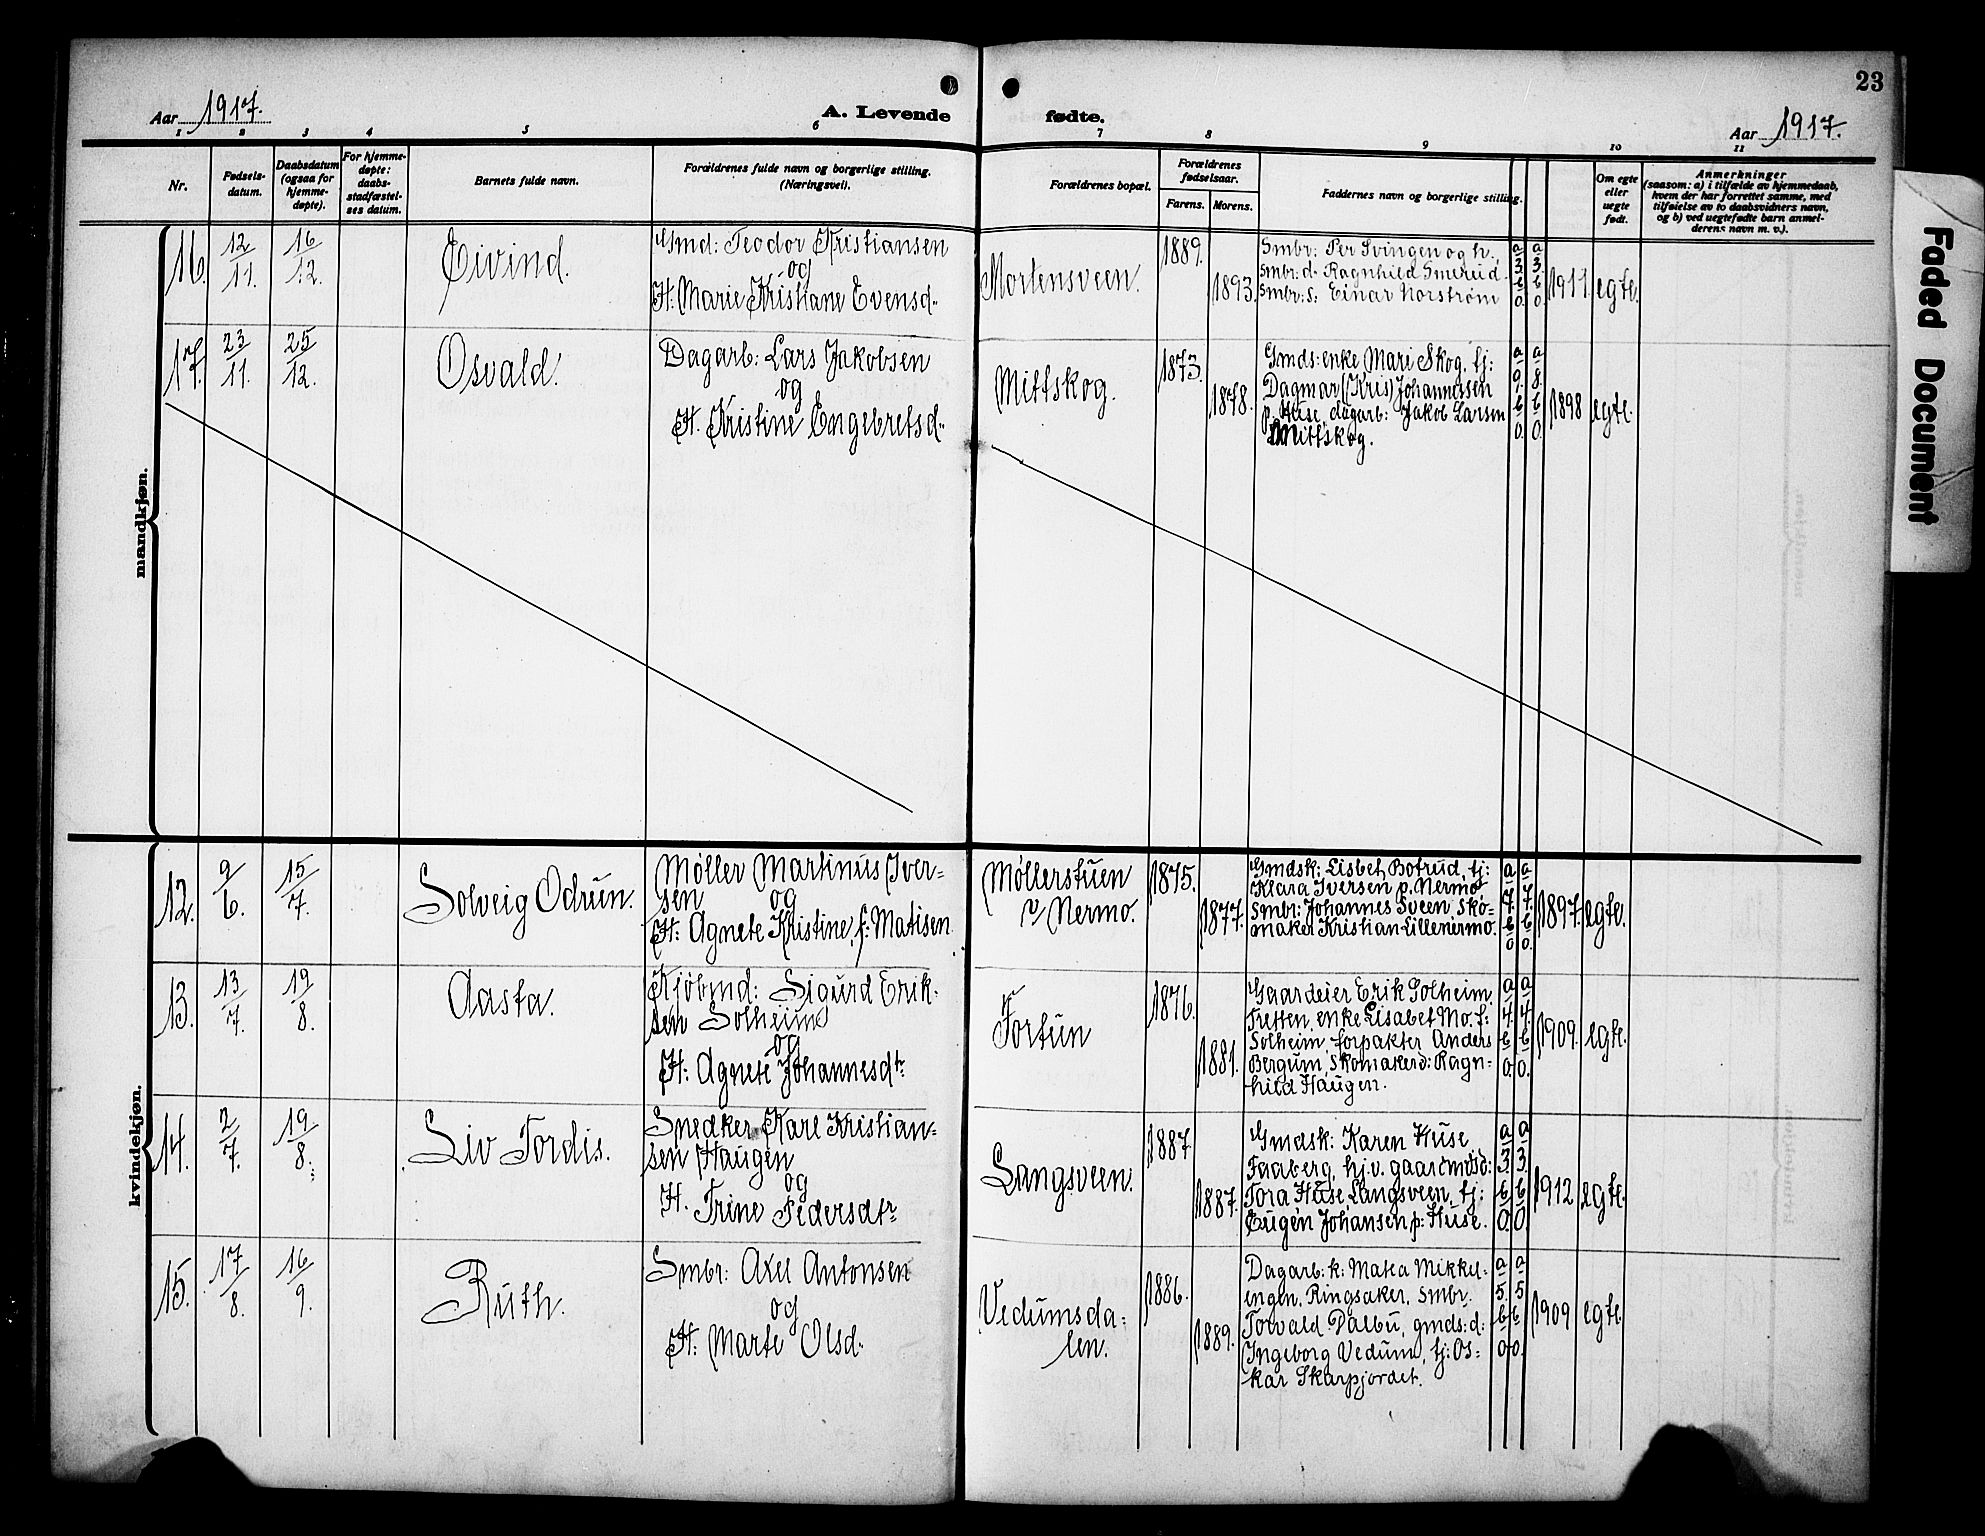 23
Aar 1917.
A. Levende
fødte.
Aar 1917.
1 2 3 4 5 6 7 8 9 10 11
Nr.
Fødsels-
datum.
Daabsdatum
(ogsaa for
hjemme-
døpte).
For hjemme-
døpte:
daabs-
stadfæstel-
ses datum.
Barnets fulde navn.
Forældrenes fulde navn og borgerlige stilling.
(Næringsvei).
Forældrenes bopæl.
Forældrenes
fødselsaar.
Farens. Morens.
Faddernes navn og borgerlige stilling.
Om egte
eller
uegte
født.
Anmerkninger
(saasom: a) i tilfælde av hjemmedaab,
hvem der har forrettet samme, med
tilføielse av to daabsvidners navn,
og b) ved uegtefødte barn anmel-
derens navn m. v.).
mandkjøn.
16. 12/11. 16/12.
Eivind.
Gmd: Teodor Kristiansen
og
H. Marie Kristiane Evensd.
Mortensveen.
1889.
1893.
Smbr: Per Svingen og h.
Smbr: d. Ragnhild Smerud.
Smbr: s: Einar Norstrøm
a 3. b 0.
a 3. b 0
1911 egte.
17. 23/11. 25/12.
Osvald.
Dagarb: Lars Jakobsen
og
H. Kristine Engebretsd.
Mittskog.
1873.
1878.
Gmds: enke Mari Skog, tj:
Dagmar (Kris) Johannessen
p. Huse, dagarb: Jakob Larsen
Mittskog.
a 0. b 0.
a 8. b 0.
1898 egte.
kvindekjøn.
12. 9/6. 15/7.
Solveig Odrun.
Møller Martinus Iver-
sen og
H: Agnete Kristine, f: Matisen.
Møllerstuen
v/ Nermo.
1875.
1877.
Gmdsk: Lisbet Botrud, tj:
Klara Iversen p. Nermo
Smbr: Johannes Sveen Sko-
maker Kristian Lillenermo.
a 7. b 0
a 7. b 0.
1897. egte.
13. 13/7. 19/8.
Aasta.
Kjøbmd: Sigurd Erik-
sen Solheim
og
H: Agnete Johannesdtr
Fortun
1876.
1881.
Gaardeier Erik Solheim,
Tretten, enke Lisabet Mo. f:
Solheim, forpakter Anders
Bergum, Skomakerd: Ragn-
hild Haugen.
a 4. b 0.
a 4. b 0.
1909. egte.
14. 2/7. 19/8.
Liv Tordis.
Snedker Karl Kristian-
sen Haugen
og
H. Trine Pedersdtr
Langsveen.
1887
1887.
Gmdsk: Karen Huse
Faaberg, hj.v. gaardmdsd:
Tora Huse, Langsveen, tj:
Eugén Johansen p: Huse.
a 3. b 0.
a 3. b 0.
1912 egte.
15. 17/8. 16/9.
Ruth.
Smbr: Axel Antonsen
og
H: Marte Olsd.
Vedumsda-
len.
1886.
1889.
Dagarb: k: Matea Mikkel-
engen, Ringsaker, smbr.
Torvald Dalbu, gmds: d:
Ingeborg Vedum, tj: Os-
kar Skarpjordet.
a 5. b 0
a 5 b 0.
1909 egte.
Faded Document